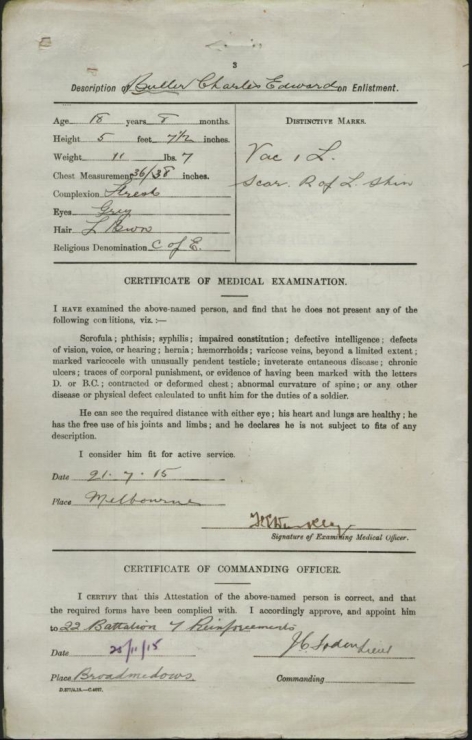 3
Description of Butler Charles Edward on Enlistment.
Age 18 years 8 months.
Height 5 feet 7½ inches.
Weight 11 lbs. 7
Chest Measurement 36/38 inches.
Complexion Fresh
Eyes Grey
Hair L Bwn
Religious Denomination C of E.
DISTINCTIVE MARKS.
Vac 1 L.
Scar. R of L. Shin
CERTIFICATE OF MEDICAL EXAMINATION.
I HAVE examined the above-named person, and find that he does not present any of the
following conditions, viz.:—
Scrofula; phthisis; syphilis; impaired constitution; defective intelligence; defects
of vision, voice, or hearing; hernia; hæmorrhoids; varicose veins, beyond a limited extent;
marked varicocele with unusually pendent testicle; inveterate cutaneous disease; chronic
ulcers; traces of corporal punishment, or evidence of having been marked with the letters
D. or B.C.; contracted or deformed chest; abnormal curvature of spine; or any other
disease or physical defect calculated to unfit him for the duties of a soldier.
He can see the required distance with either eye; his heart and lungs are healthy; he
has the free use of his joints and limbs; and he declares he is not subject to fits of any
description.
I consider him fit for active service.
Date 21.7.15
Place Melbourne
Signature of Examining Medical Officer.
CERTIFICATE OF COMMANDING OFFICER.
I CERTIFY that this Attestation of the above-named person is correct, and that
the required forms have been complied with. I accordingly approve, and appoint him
to 22 Battalion 7 Reinforcements
Date 25/11/15
Lieut
Place Broadmedows.
Commanding